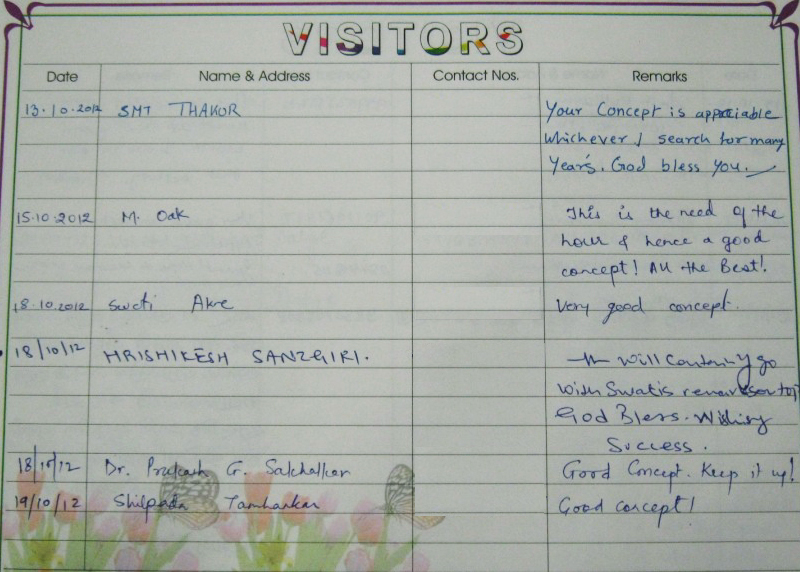 VISITORS
Date Name & Address Contact Nos. Remarks
13.10.2012 SMT THAKUR Your Concept is appriciable
whichever I search for many
Years. God bless you.
15.10.2012 M. Oak This is the need of the
hour & hence a good
concept! All the Best!
18.10.2012 Swati Akre Very good concept.
18/10/12 HRISHIKESH SANZGIRI. will go
with Swatis remarks
God Bless. Wishing
Success.
18/10/12 Dr. Prakash G. Good Concept. Keep it up!
19/10/12 Shilpada Tamhankar Good concept!